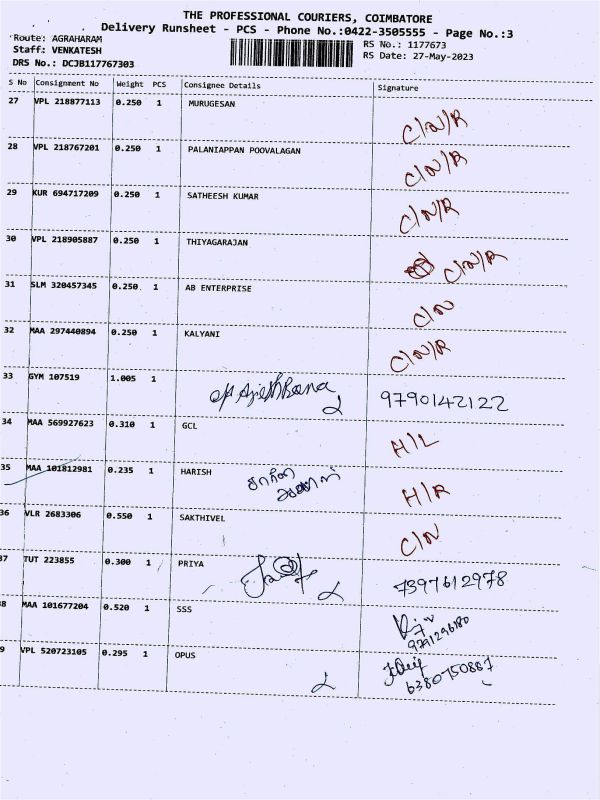 THE PROFESSIONAL COURIERS, COIMBATORE
Delivery Runsheet - PCS - Phone No.:0422-3505555 - Page No.:3
Route: AGRAHARAM
RS No.: 1177673
Staff: VENKATESH
RS Date: 27-May-2023
DRS No.: DCJB117767303
S No Consignment No Weight PCS Consignee Details Signature
27 VPL 218877113 0.250 1 MURUGESAN
C/N/R
28 VPL 218767201 0.250 1 PALANIAPPAN POOVALAGAN
C/N/R
29 KUR 694717209 0.250 1 SATHEESH KUMAR
C/N/R
30 VPL 218905887 0.250 1 THIYAGARAJAN
C/N/R
31 SLM 320457345 0.250 1 AB ENTERPRISE
C/N
32 MAA 297440894 0.250 1 KALYANI
C/N/R
33 GYM 107519 1.005 1
9790142122
34 MAA 569927623 0.310 1 GCL
H/L
35 MAA 101812981 0.235 1 HARISH
H/R
36 VLR 2683306 0.550 1 SAKTHIVEL
C/N
37 TUT 223855 0.300 1 PRIYA
7397612978
38 MAA 101677204 0.520 1 SSS
9791296180
39 VPL 520723105 0.295 1 OPUS
6380750887